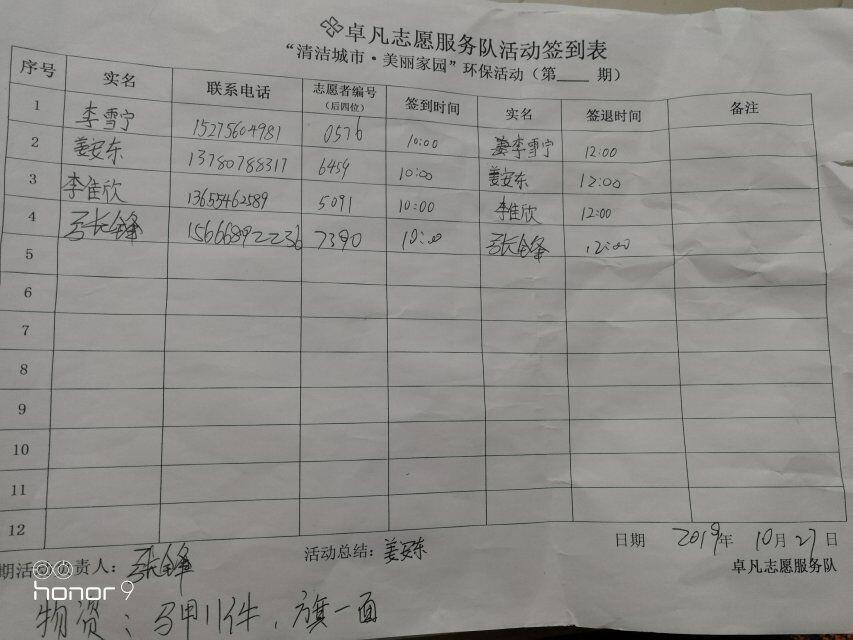 卓凡志愿服务队活动签到表
“清洁城市·美丽家园”环保活动（第____ 期）
序号 实名 联系电话 志愿者编号（后四位） 签到时间 实名 签退时间 备注
1 李雪宁 15275604981 0576 10:00 李雪宁 12:00
2 姜安东 13780788317 6459 10:00 姜安东 12:00
3 李佳欣 13655462589 5091 10:00 李佳欣 12:00
4 张锋 15666892236 7390 10:00 张锋 12:00
5
6
7
8
9
10
11
12
日期 2019年 10月 27日
期活 责人：张锋 活动总结：姜安东
卓凡志愿服务队
honor 9
物资：马甲11件，旗一面